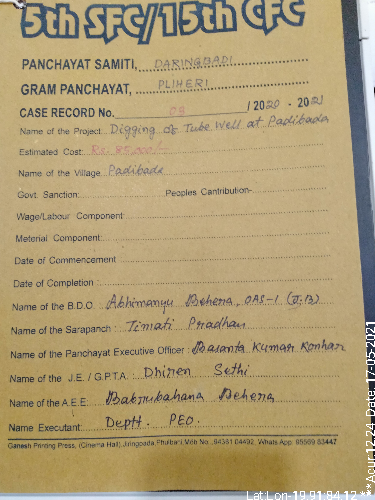 5th SFC/15th CFC
PANCHAYAT SAMITI, DARINGBADI
GRAM PANCHAYAT, PLIHERI
CASE RECORD No. 09 /2020 - 2021
Name of the Project: Digging of Tube Well at Padibada
Estimated Cost: Rs. 85,000/-
Name of the Village: Padibada
Govt. Sanction: Peoples Cantribution-
Wage/Labour Component:
Meterial Component:
Date of Commencement
Date of Completion :
Name of the B.D.O: Abhimanyu Behera, OAS-1 (J.B)
Name of the Sarapanch : Timati Pradhan
Name of the Panchayat Executive Officer : Basanta Kumar Konhar
Name of the J.E. / G.P.T.A. Dhiren Sethi
Name of the A.E.E: Bakrubahana Behera
Name Executant: Deptt. PEO.
Ganesh Printing Press, (Cinema Hall) Jringpada Phulbani, Mob No.:94381 04492, Whats App: 95569 83447
Lat:Lon-19.91:84.12
**Acur:12.24, Date: 17-05-2021